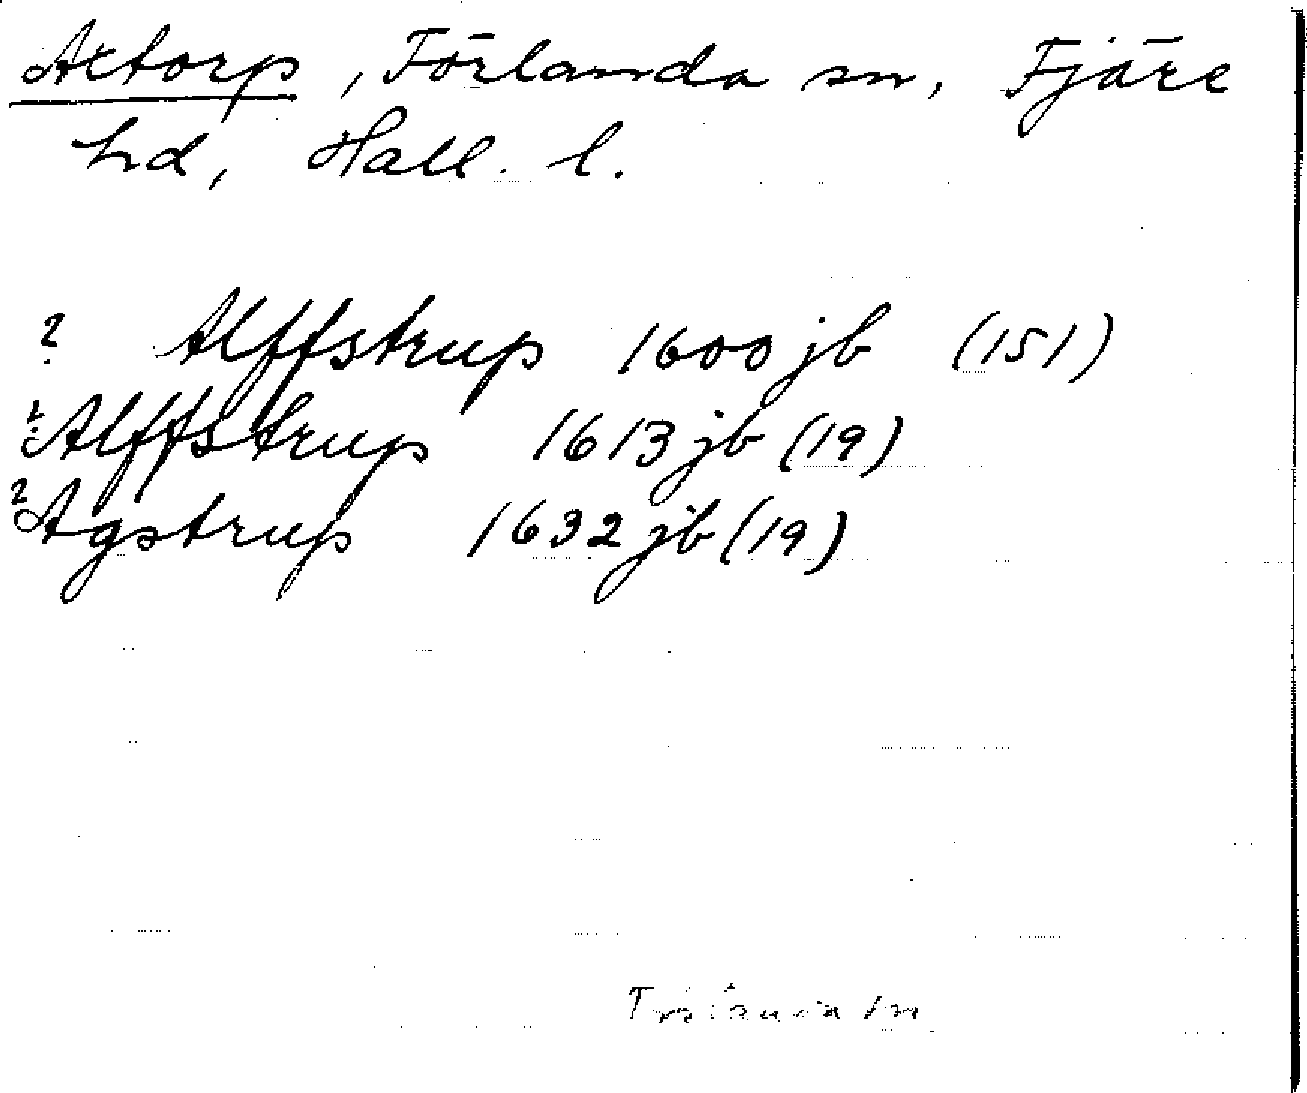 Aktorp, Förlanda sn, Fjäre
hd, Hall. l.
? Alffstrup 1600 jb (151)
? Alffstrup 1613 jb (19)
? Agstrup 1632 jb (19)